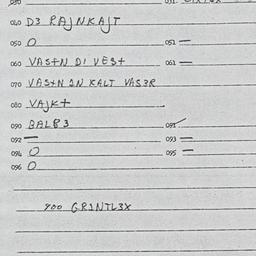 040 D3 RAJNKAJT
050 O 051 —
060 VAS+N DI VES+ 061 —
070 VAS+N IN KALT VAS3R
080 VAJK+
090 BALB3 091
092 — 093 —
094 O 095 —
096 O
700 GRINTL3X